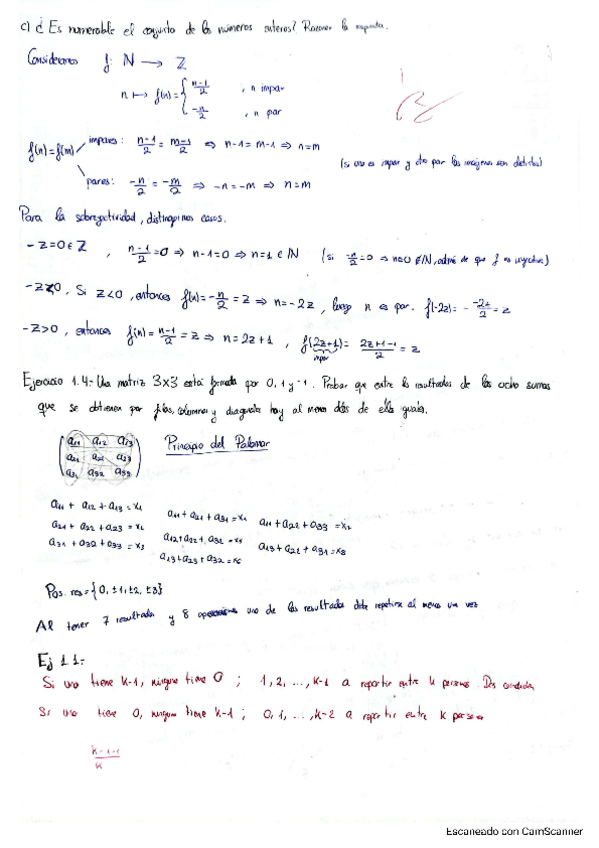 c) ¿Es numerable el conjunto de los números enteros? Razonar la respuesta.
Consideremos f: N → Z
n ↦ f(n) = { n-1/2 , n impar
-n/2 , n par
f(n)=f(m) impares: n-1/2 = m-1/2 ⇒ n-1=m-1 ⇒ n=m
(si uno es impar y otro par las imágenes son distintas)
pares: -n/2 = -m/2 ⇒ -n=-m ⇒ n=m
Para la sobreyectividad, distinguimos casos.
- z=0∈Z , n-1/2=0 ⇒ n-1=0 ⇒ n=1∈N (si -n/2=0 ⇒ n=0∉N, además de que f es inyectiva)
- z<0, Si z<0, entonces f(n)=-n/2=z ⇒ n=-2z, luego n es par. f(-2z)= - -2z/2 = z
- z>0, entonces f(n)=n-1/2=z ⇒ n=2z+1 , f(2z+1)= 2z+1-1/2 = z
impar
Ejercicio 1.4: Una matriz 3x3 está formada por 0, 1 y -1. Probar que entre los resultados de las ocho sumas
que se obtienen por filas, columnas y diagonales hay al menos dos de ellas iguales.
(a11 a12 a13
a21 a22 a23
a31 a32 a33)
Principio del Palomar
a11 + a12 + a13 = x1
a21 + a22 + a23 = x2
a31 + a32 + a33 = x3
a11 + a21 + a31 = x4
a12 + a22 + a32 = x5
a13 + a23 + a33 = x6
a11 + a22 + a33 = x7
a13 + a22 + a31 = x8
Pos. res = {0, ±1, ±2, ±3}
Al tener 7 resultados y 8 uno de los resultados debe repetirse al menos una vez
Ej 1 1:
Si uno tiene k-1, ninguno tiene 0 ; 1, 2, ..., k-1 a repartir entre k personas.
Si uno tiene 0, ninguno tiene k-1 ; 0, 1, ..., k-2 a repartir entre k personas
k-1-1/k
Escaneado con CamScanner